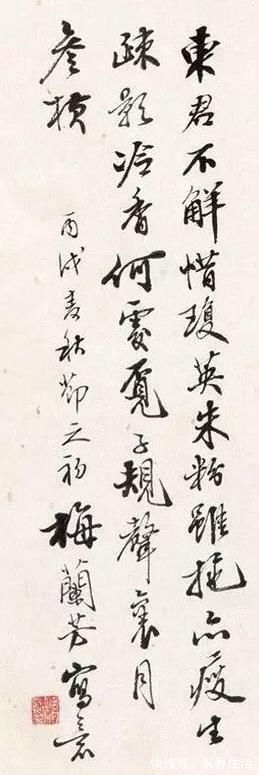 東君不解惜瓊英朱粉雖施亦瘦生
疎影冷香何處覓子規聲裏月
參横
丙戌麦秋節之初梅蘭芳寫意
快传号